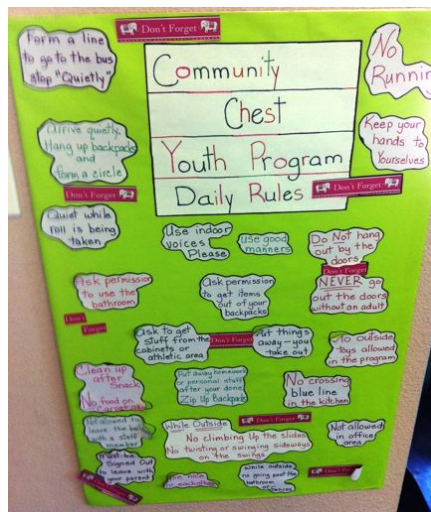 Form a line
to go to the bus
stop "Quietly"
Don't Forget
No
Runnin
Community
Chest
Youth Program
Daily Rules
Don't Forget
Arrive quietly
Hang up backpacks
and
form a circle
Keep your
hands to
Yourselves
Don't Forget
Quiet while
roll is being
taken
Use indoor
voices
Please
Use good
manners
Do Not hang
out by the
doors
Don't Forget
NEVER go
out the doors
without an adult
Ask permission
to use the
bathroom
Ask permission
to get items
out of your
backpacks
Don't
Forget
Ask to get
stuff from the
cabinets or
athletic area
Don't Forget
Put things
away - you
take out
No outside
toys allowed
in the program
Clean up
after
Snack
No food on
Put away homework
or personal stuff
after your done
Zip Up Backpacks
No crossing
blue line
in the kitchen
Not allowed to
leave the
with a staff
member
Don't Forget
While Outside
No climbing Up the slides
No twisting or swinging sideways
on the swings
Not allowed
in office
area
must be
Signed Out
to leave with
your parent
Be nice
to eachother
While outside
no going past the
bathroom
or